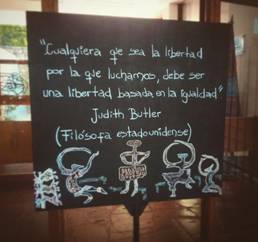 "Cualquiera que sea la libertad
por la que luchamos, debe ser
una libertad basada en la igualdad"
Judith Butler
(Filósofa estadounidense)